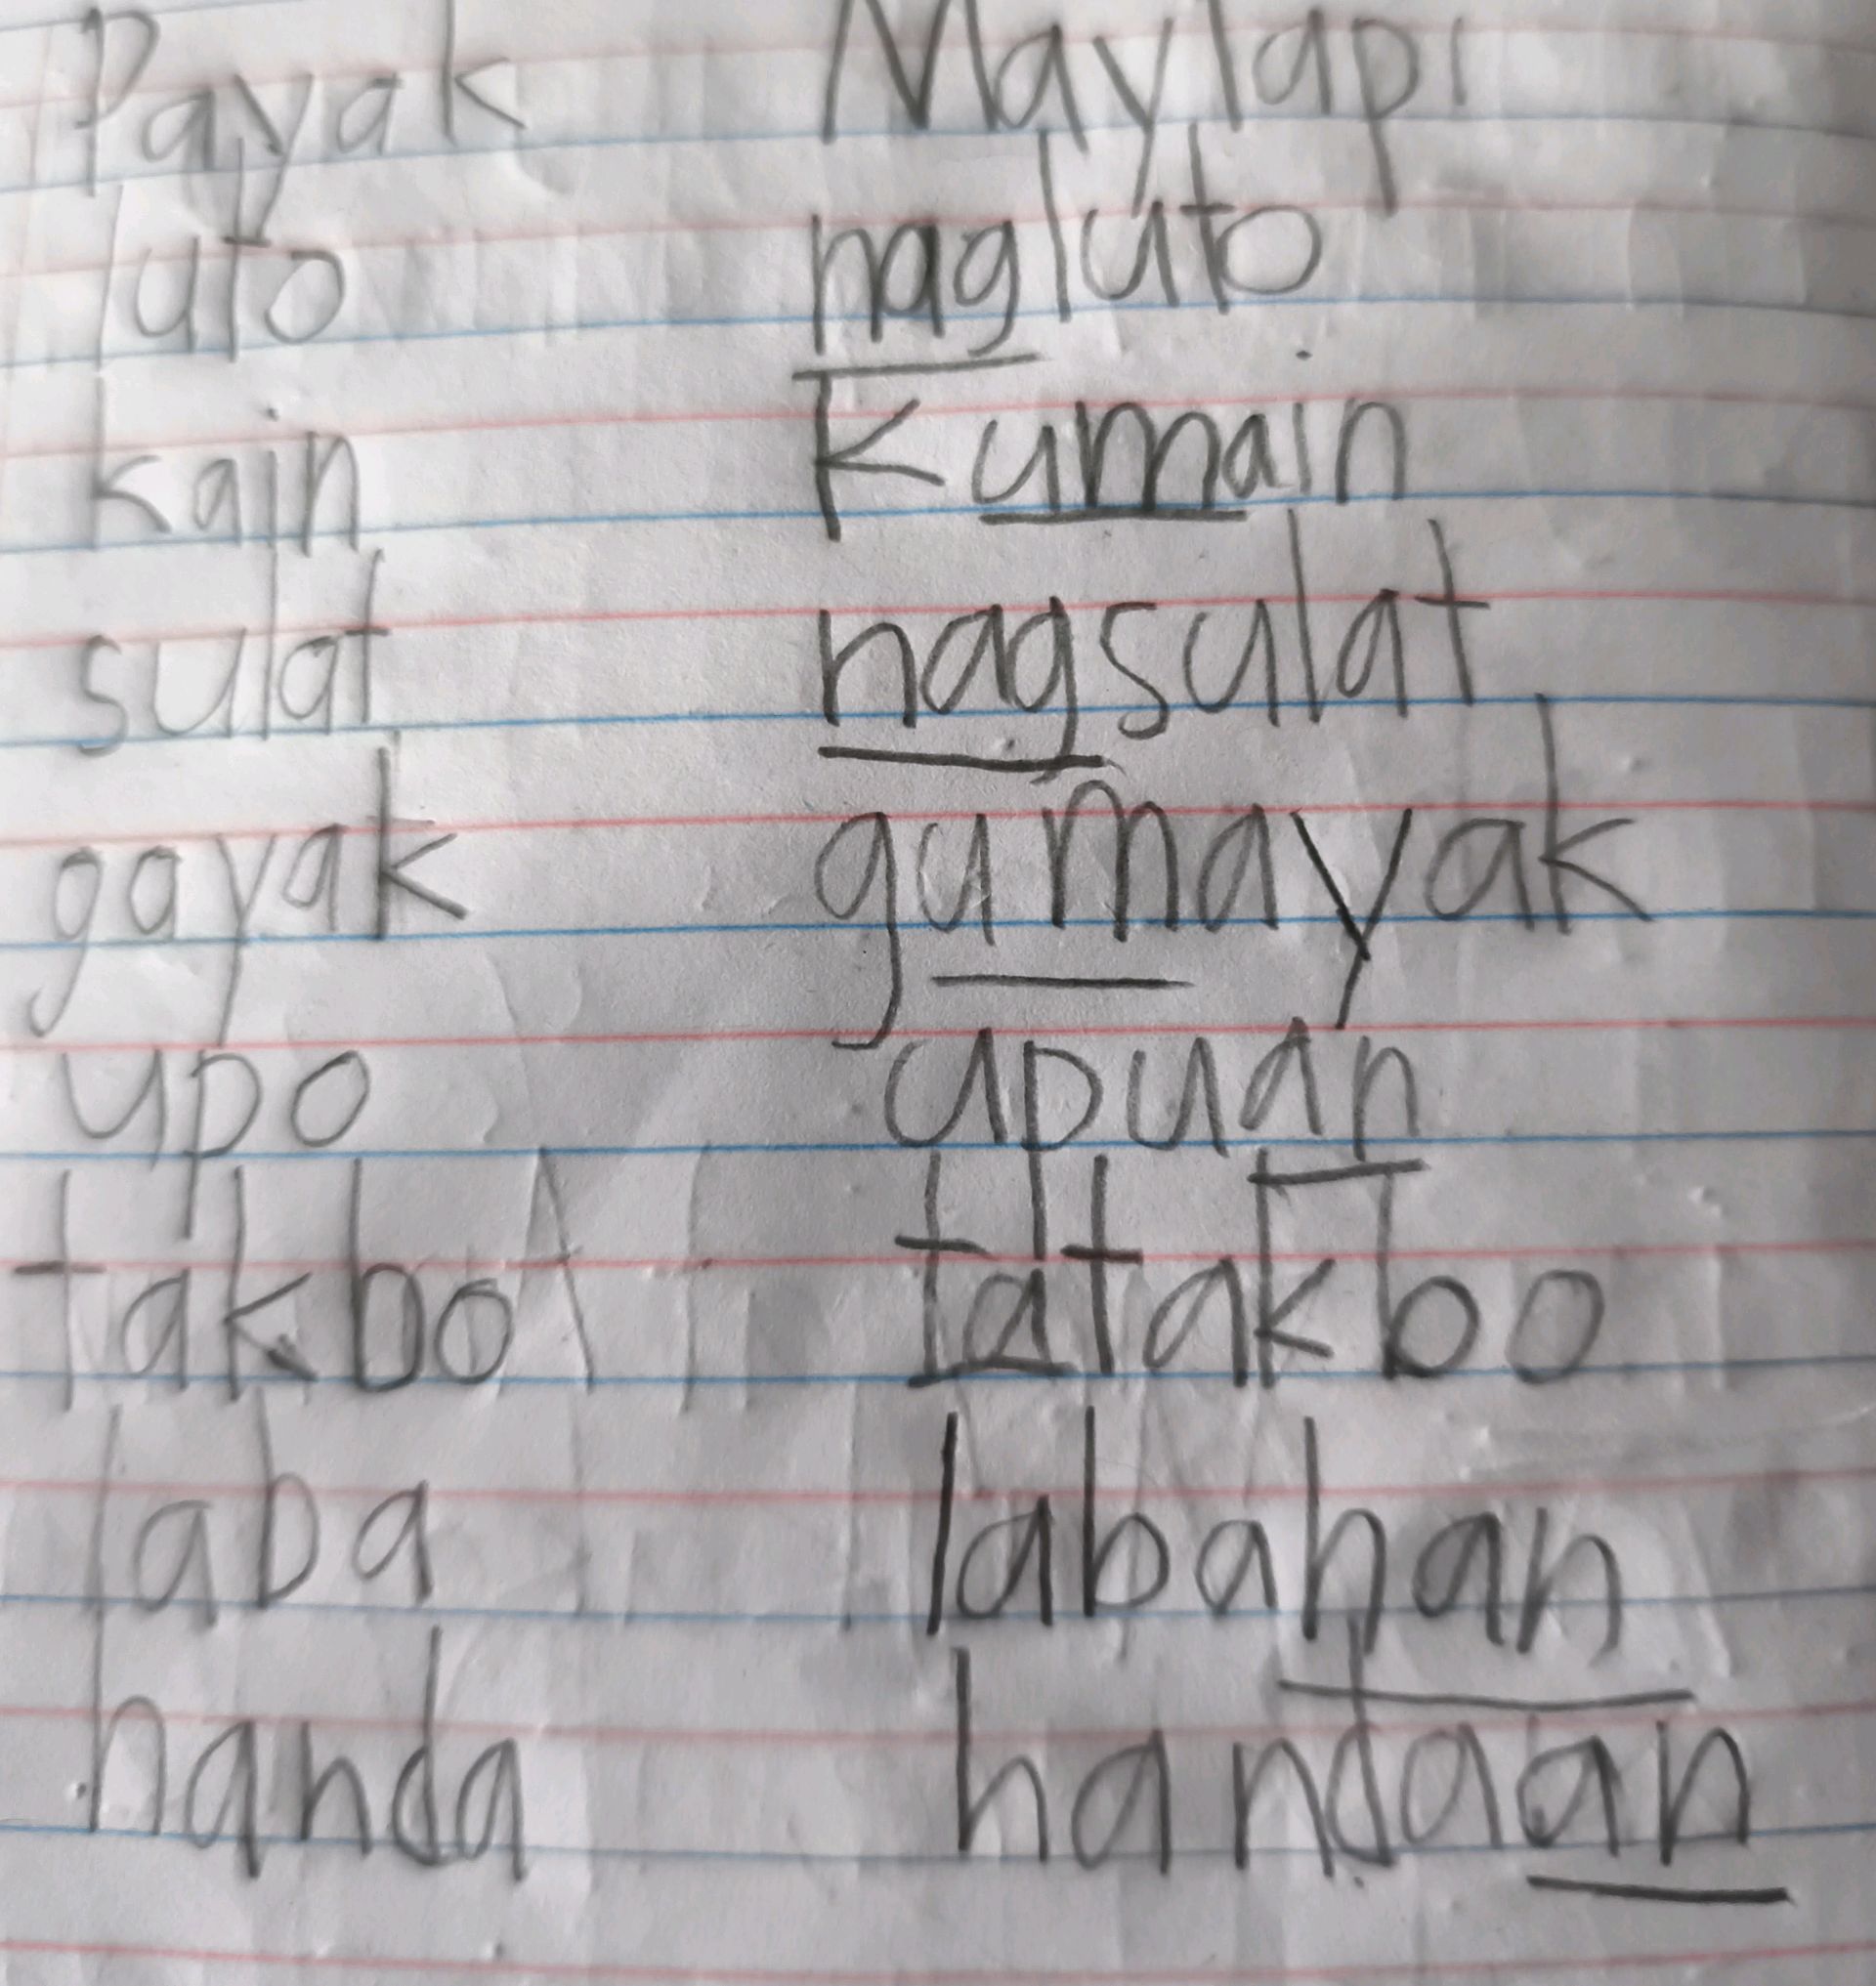 Payak Maylapi
luto nagluto
kain Kumain
sulat nagsulat
gayak gumayak
upo upuan
takbo tatakbo
laba labahan
handa handaan